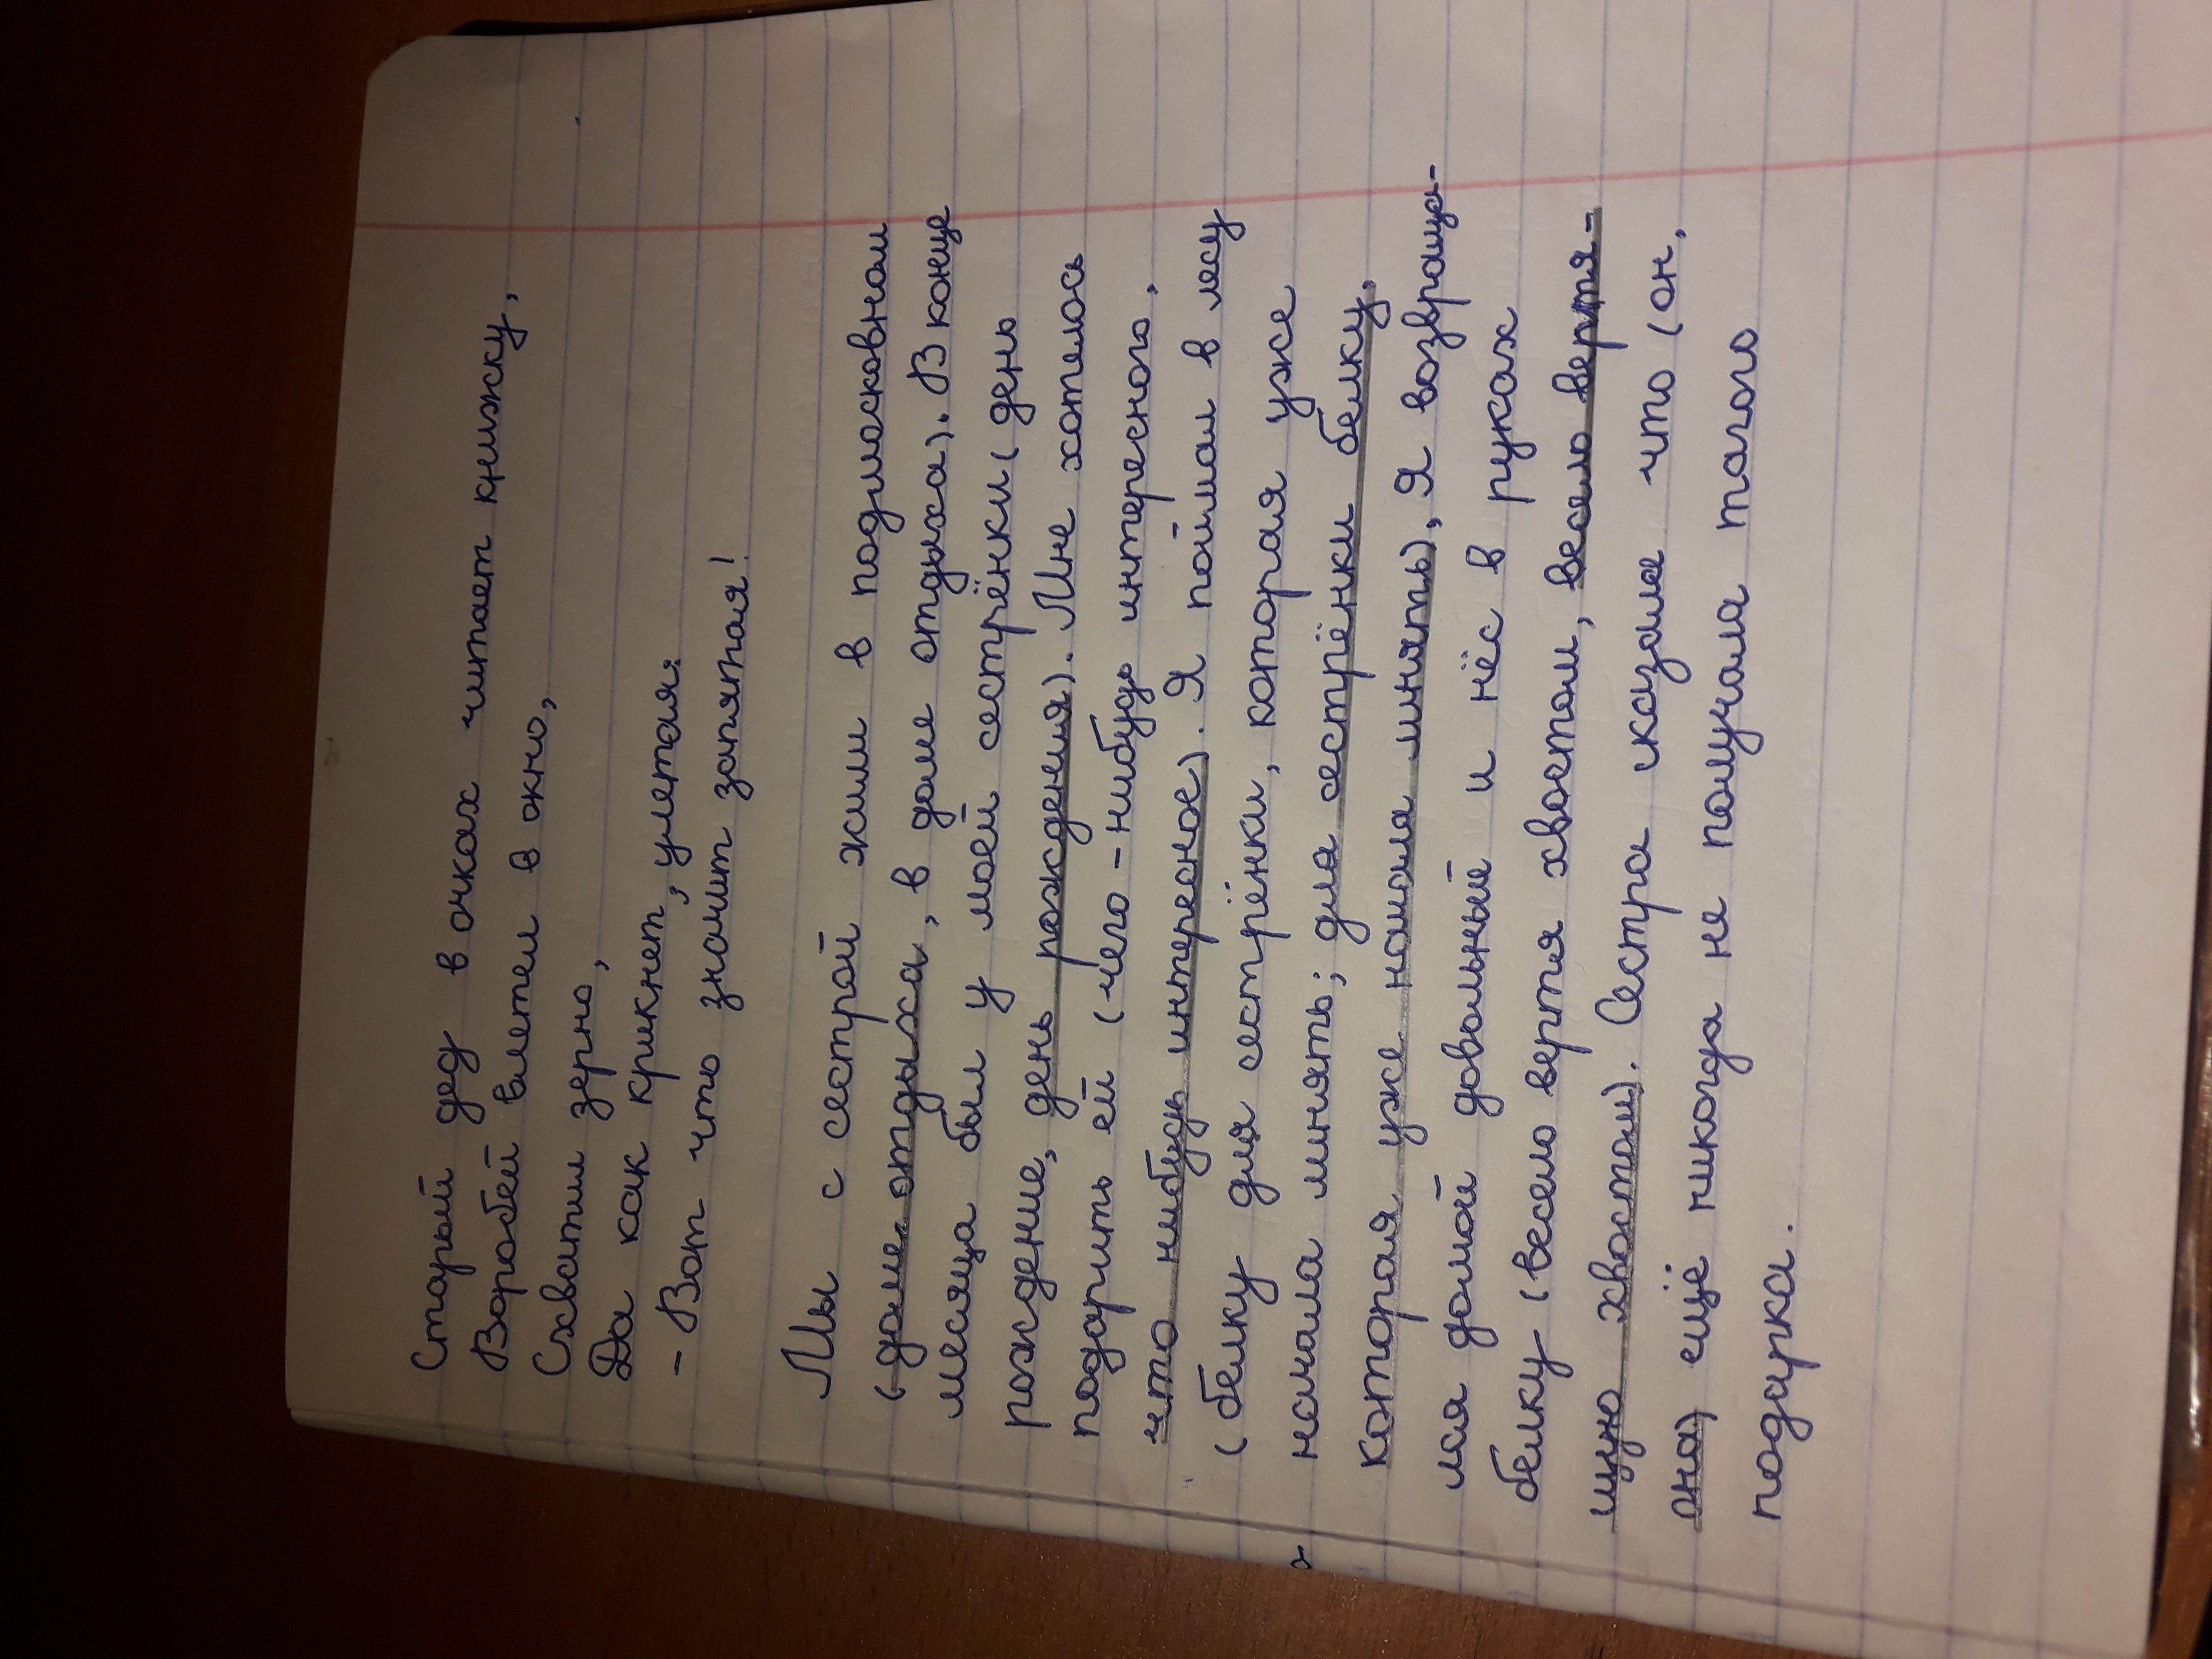 Старый дед в очках читает книжку,
Воробей влетел в окно,
Схватил зерно,
Да как крикнет, улетая:
- Вот что значит запятая!
Мы с сестрой жили в подмосковном
(доме отдыха, в доме отдыха). В конце
месяца был у моей сестрёнки (день
рождение, день рождения). Мне хотелось
подарить ей (чего-нибудь интересного,
что нибудь интересное). Я поймал в лесу
(белку для сестрёнки, которая уже
начала линять; для сестрёнки белку,
которая уже начала линять), Я возвраща-
лся домой довольный и нёс в руках
белку (весело вертя хвостом, весело вертя-
щую хвостом). Сестра сказала что (он,
она) ещё никогда не получала такого
подарка.